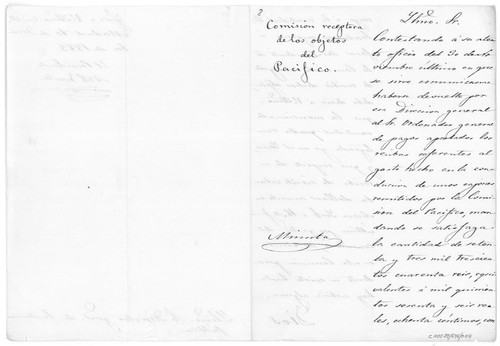 2
Comision receptora
de los objetos
del
Pacífico.
Minuta
Ilmo. Sr.
Contestando á su aten
to oficio del 30 de
viembre último en que
se sirve comunicarme
haberse devuelto por
esa Direccion general
al Sr. Ordenador general
de pagos aprobados los
recibos referentes al
gasto hecho en la con
duccion de unos cajones
remitidos por la Comi
sion del Pacífico, man
dando se satisfaga
la cantidad de seten
ta y tres mil trescien
tos cuarenta reis, equi
valentes á mil quinien
tos sesenta y seis rea
les, ochenta céntimos, con